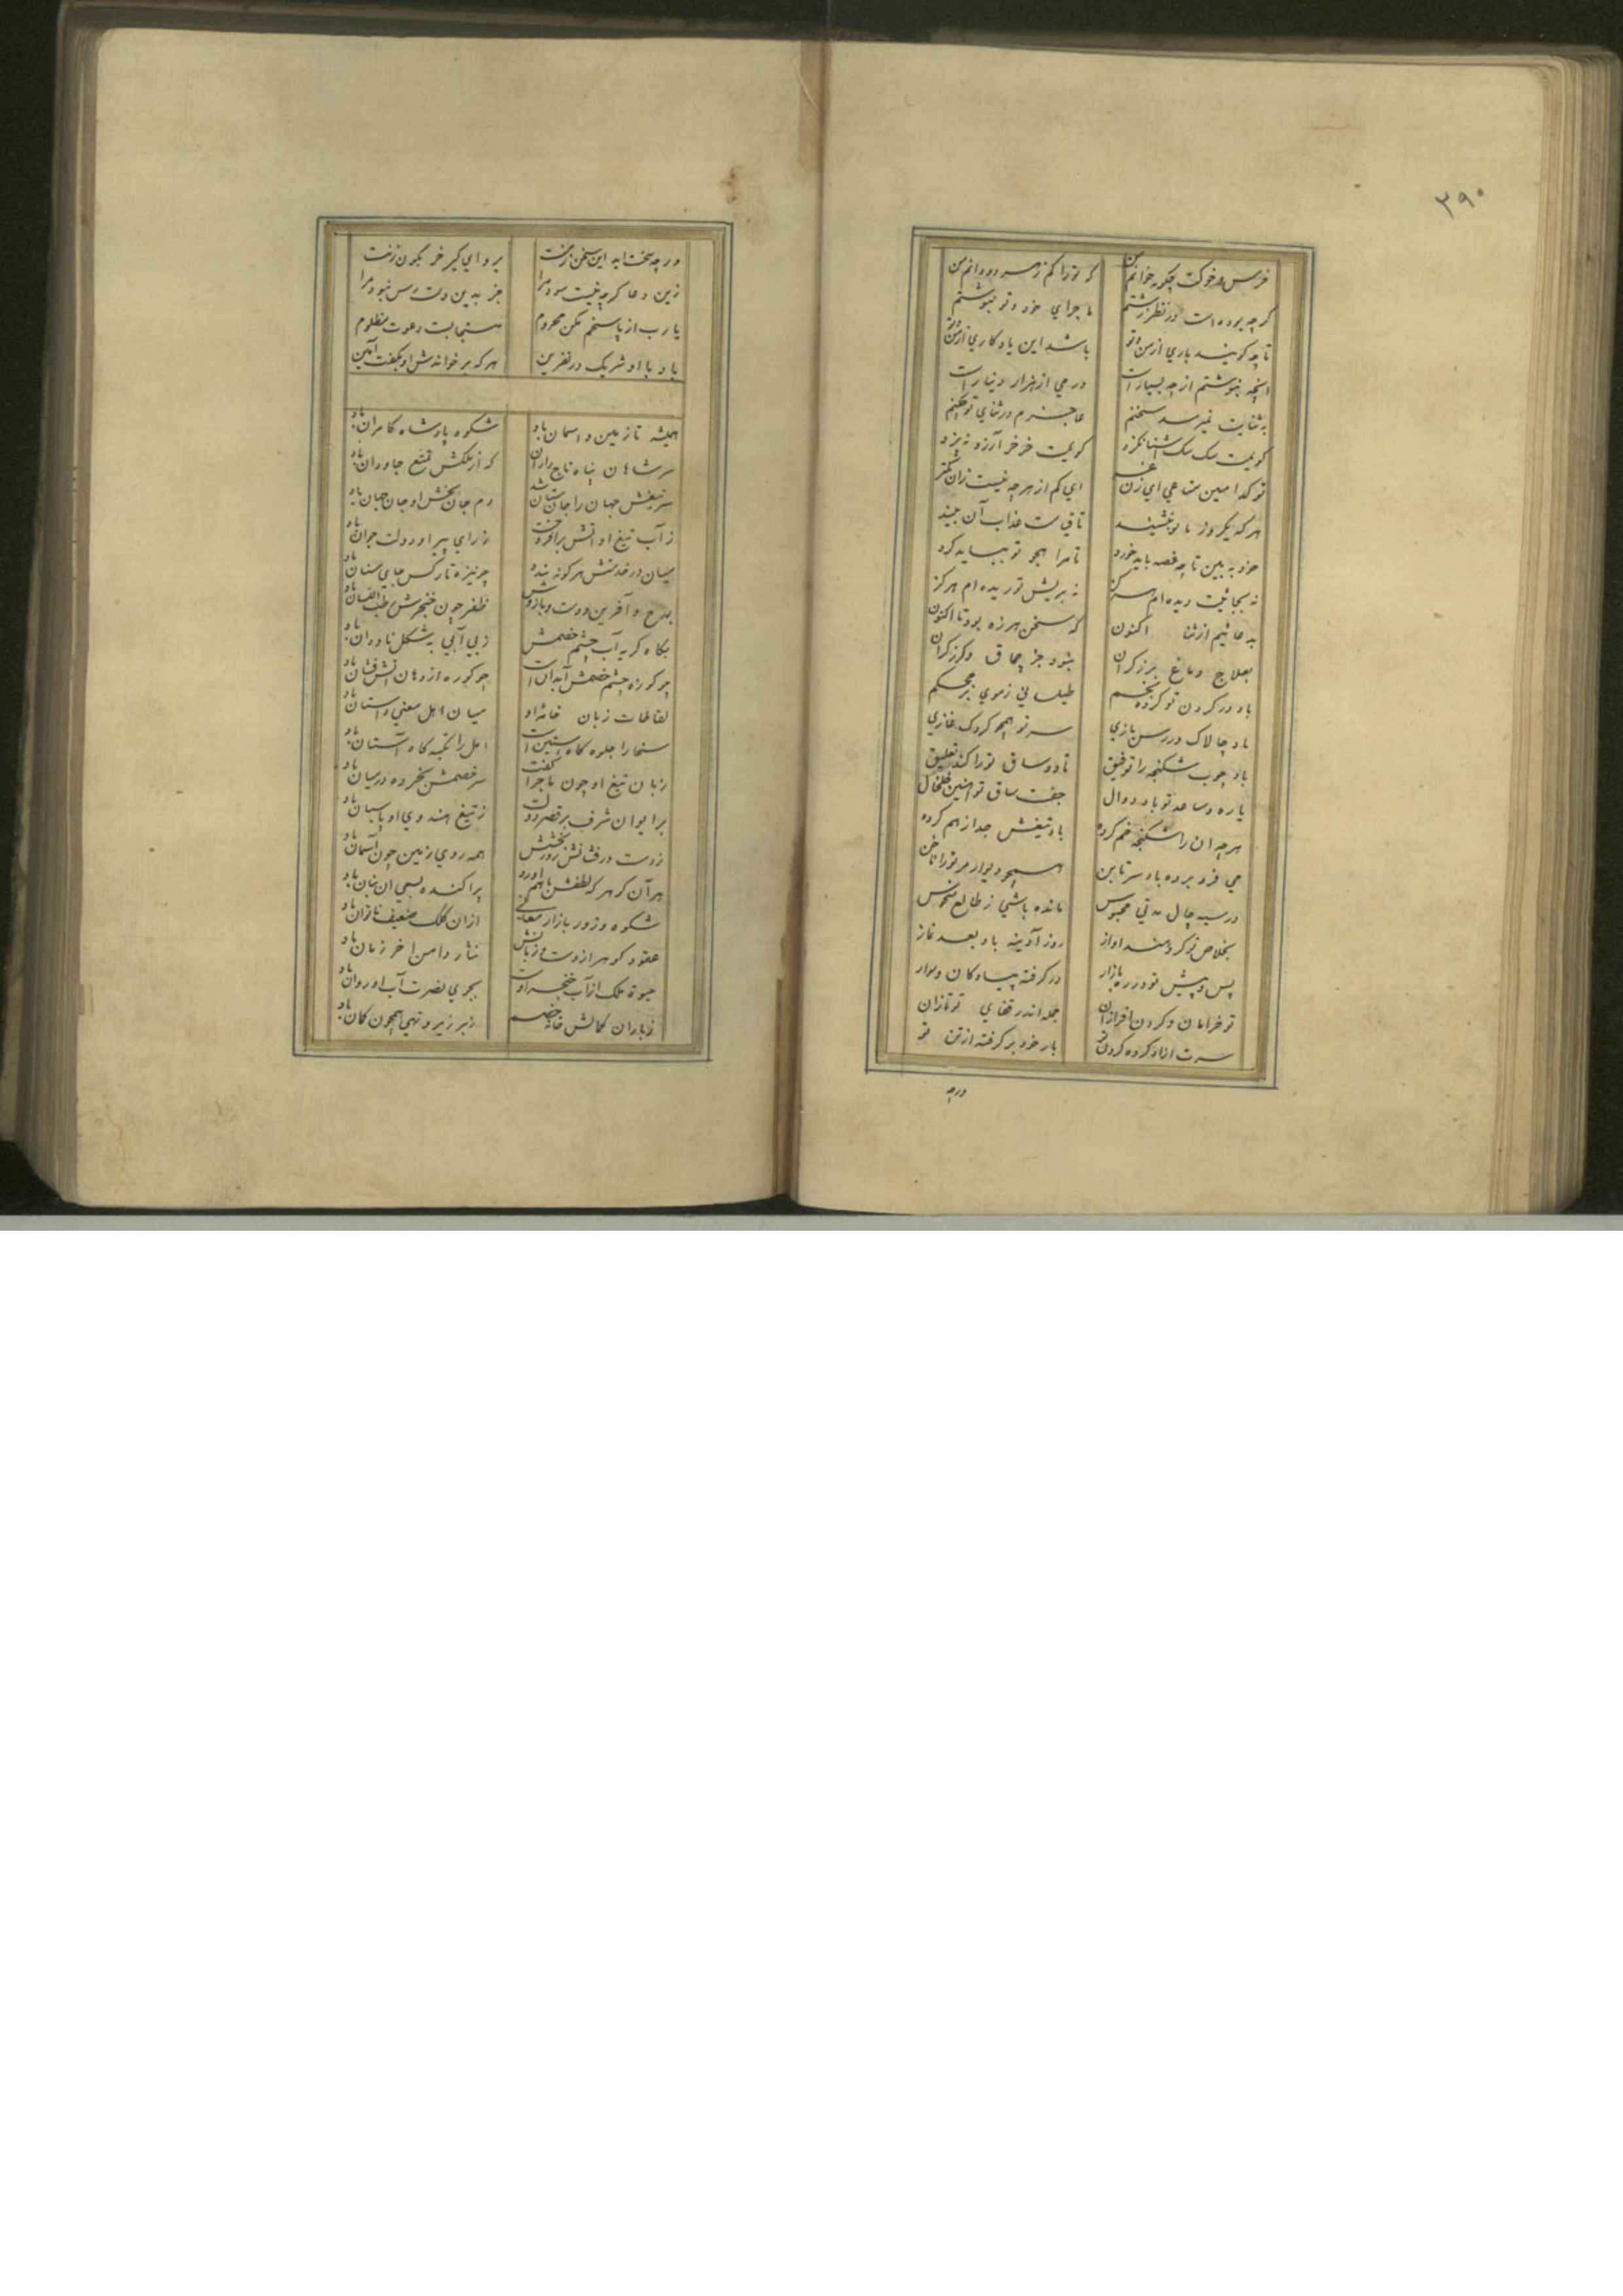 ۳۹۰
خرس و خوکت چگونه خوانم من که تو را کم ز هر دو دانم من
گرچه بوده است در نظر زشتم ماجرای خود و تو بنوشتم
تا چه گویند باری از من و تو باشد این یادگاری از من و تو
انچه بنوشتم از چه بسیار است درمی از هزار دینار است
به ثنایت نمیرسد سخنم عاجزم در ثنای تو چکنم
گویمت سک سک اشنا نکزد گویمت خر خر آرزو نپزد
تو کدامین متاعی ای زن غر ای کم از هر چه نیست زان کمتر
هر که یکروز با تو بنشیند تا قیامت عذاب آن بیند
خود به بین تا چه غصه باید خورد تا مرا هجو تو بباید کرد
نه بجائیت دیده ام هرگز نه بریش تو ریده ام هرگز
به دعا ئیم از ثنا اکنون که سخن هرزه بود تا اکنون
بعلاج دماغ برزگران نبود جز چماق و گرز گران
باد در گردن تو کرده بخم طیلسانی ز موی بز محکم
باد چالاک در رسن بازی سر تو همچو کردک غازی
باد چوب شکنجه را توفیق تا دو ساق تو را کند تعلیق
یاره ساعد تو باد دوال جفت ساق تو آهنین خلخال
هر چه ان را شکنجه خم کرده باد تیغش جدا ز هم کرده
می فرو برده باد سر تا بن همچو دیوار مر تو را ناخن
در سیه چال مدتی محبوس مانده باشی ز طالع منحوس
بخلاص تو کرده اند اواز روز آدینه باد بعد نماز
پس و پیش تو در ره بازار در گرفته پیادگان و سوار
تو خرامان و گردن افرازان جمله اندر قفای تو تازان
سرت ازاد کرده گردن تو بار خود بر گرفته از تن تو
ورچه
ورچه سخت اید این سخن بزنت برو ای کیر خر بکون زنت
زین دعا گرچه نیست سود مرا جز بدین دسترس نبود مرا
یا رب از پاسخم مکن محروم مستجابست دعوت مظلوم
هر که بر خواندش او بگفت آمین باد با او شریک در نفرین
همیشه تا زمین و اسمان باد شکوه پادشاه کامران باد
سر شاهان پناه تاج داران که از ملکش تمتع جاودان باد
سر تیغش جهان را جان ستان شد دم جان بخش او جان جهان باد
ز آب تیغ او اتش برافروخت ز رای پیر او دولت جوان باد
میان در خدمتش هر کو نه بندد چو نیزه تارکش جای سنان باد
بمدح و آفرین دست و بازوش ظفر چون خنجرش رطب اللسان باد
بگاه گریه آب چشم خصمش ز بی آبی به شکل ناودان باد
چو کوزه چشم خصمش آبدان است چو کوره از دهان اتش فشان باد
لقاطات زبان خامه او میان اهل معنی داستان باد
سخا را جلوه گاه آستین است امل را تکیه گاه آستان باد
زبان تیغ او چون ماجرا گفت سر خصمش بخرده در میان باد
بر ایوان شرف بر قصر دولت ز تیغ هندوی او پاسبان باد
ز دست درفشانش روز بخشش همه روی زمین چون آسمان باد
هر آن گوهر که لطفش با هم اورد پراکنده بسعی ان بنان باد
شکوه و زور بازار معانی ازان کلک ضعیف ناتوان باد
عقود گوهر از دست و زبانش نثار دامن اخر زمان باد
حیوة ملک از آب خنجر اوست بجوی نصرت آب او روان باد
ز باران کمانش خانه خصم زبر زیر و تهی همچون کمان باد